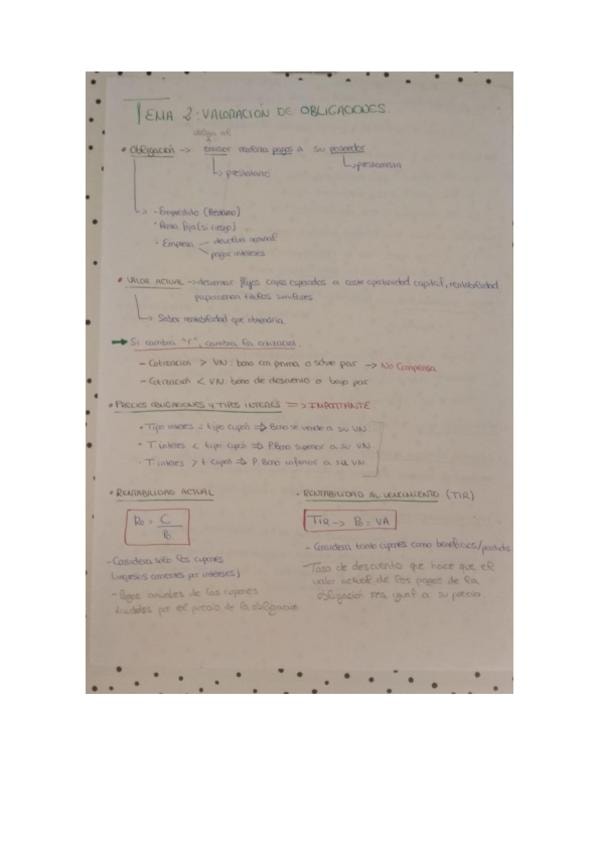 TEMA 2: VALORACIÓN DE OBLIGACIONES.
obliga al
• Obligación -> emisor realizar pagos a su poseedor
prestatario
prestamista
- Empréstito
- Renta fija (si riesgo)
- Empresa
devolver nominal
pagar intereses
• VALOR ACTUAL -> descontar flujos caja esperados a coste oportunidad capital, rentabilidad
proporcionan títulos similares
Saber rentabilidad que obtendría.
Si cambia "r", cambia la cotización.
- Cotización > VN: bono con prima o sobre par -> No Compensa
- Cotización < VN: bono de descuento o bajo par
• PRECIOS OBLIGACIONES Y TIPOS INTERÉS => IMPORTANTE
• Tipo interés = tipo cupón => Bono se vende a su VN
• T interés < tipo cupón => P. Bono superior a su VN
• T interés > t cupón => P. Bono inferior a su VN
• RENTABILIDAD ACTUAL
Ro = C
Po
- Considera solo los cupones
(ingresos corrientes por intereses)
- Pagos anuales de los cupones
divididos por el precio de la obligación
• RENTABILIDAD AL VENCIMIENTO (TIR)
TIR -> Po = VA
- Considera tanto cupones como beneficios/perdidas
Tasa de descuento que hace que el
valor actual de los pagos de la
obligación sea igual a su precio.